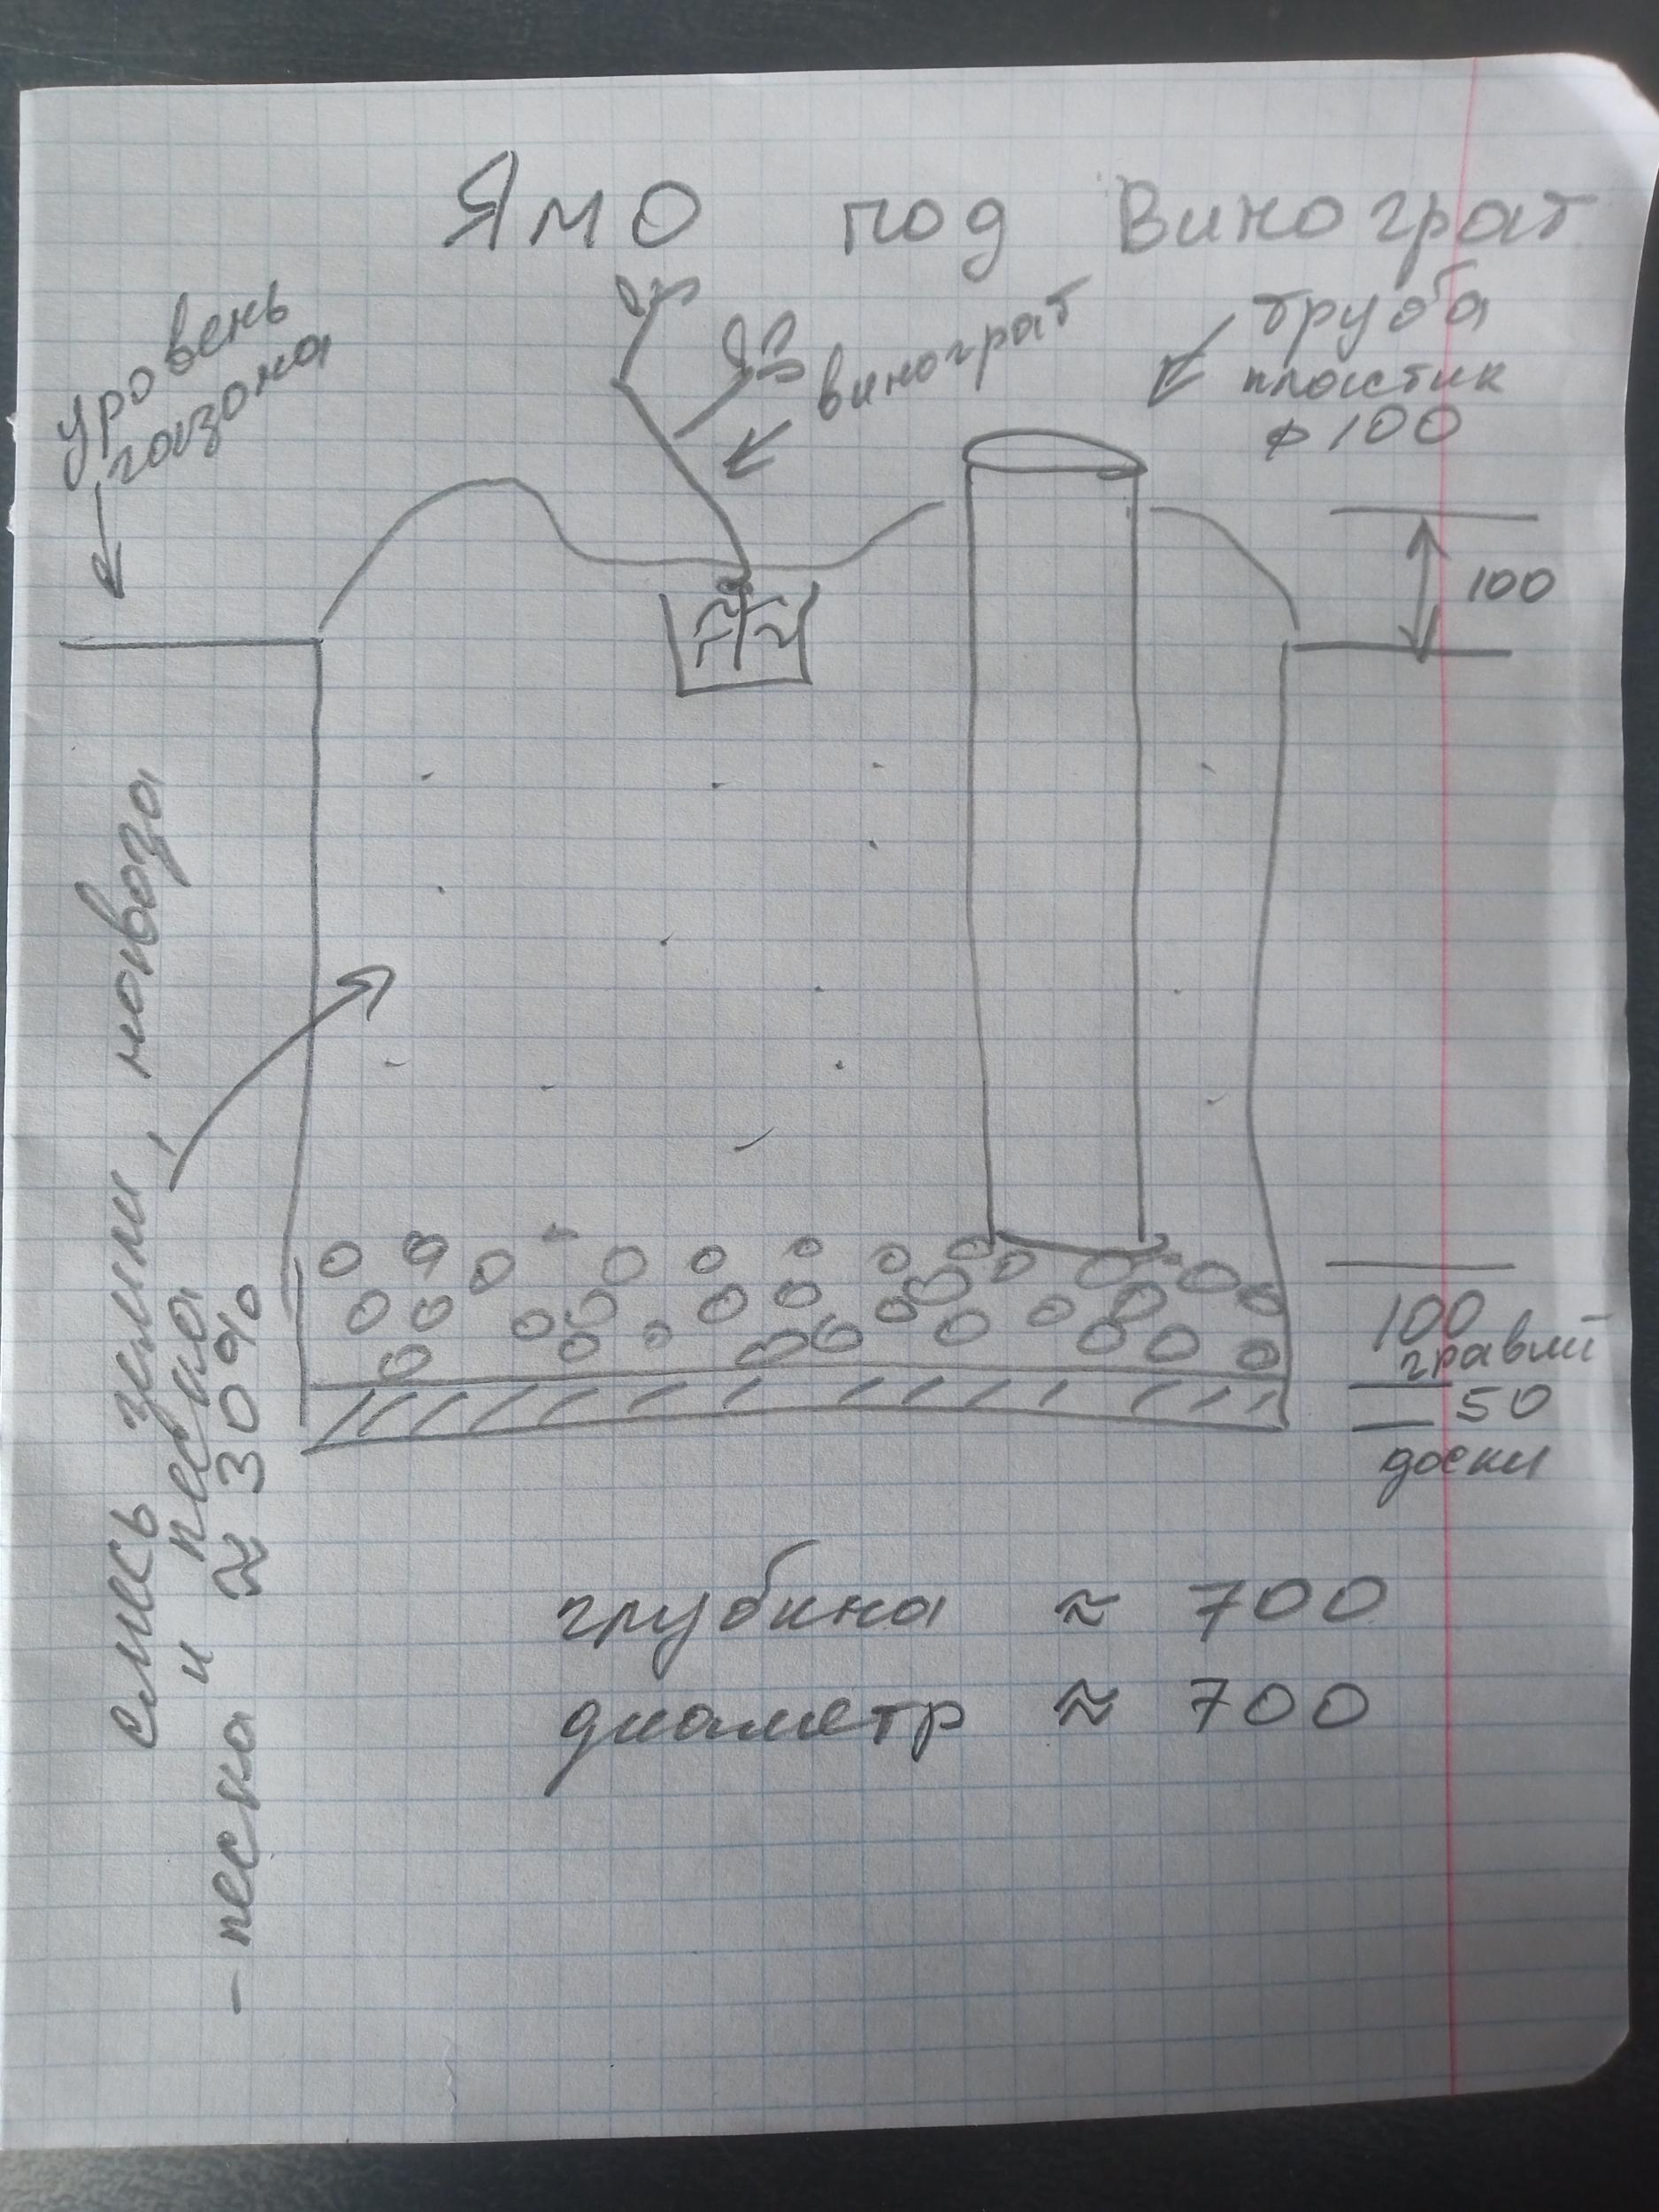 Яма под Виноград
уровень
газона
виноград
труба
пластик
ø 100
100
смесь земли, навоза
и песка
- песка ≈ 30%
100
гравий
50
доски
глубина ≈ 700
диаметр ≈ 700